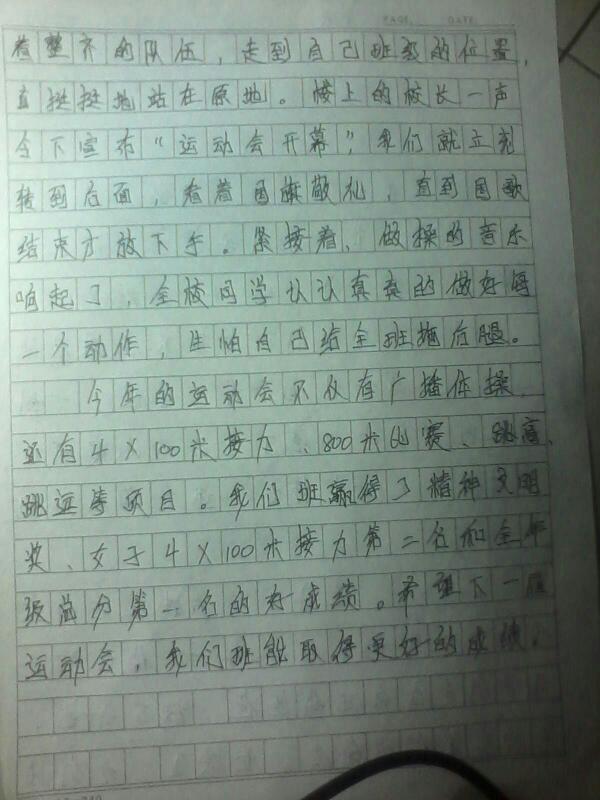 PAGE. DATE.
着整齐的队伍，走到自己班级的位置，
直挺挺地站在原地。楼上的校长一声
令下宣布“运动会开幕”，我们就立刻
转到后面，看着国旗敬礼，直到国歌
结束才放下手。紧接着，做操的音乐
响起了，全校同学认认真真的做好每
一个动作，生怕自己给全班拖后腿。
今年的运动会不仅有广播体操，
还有4×100米接力、800米比赛、跳高、
跳远等项目。我们班赢得了精神文明
奖、女子4×100米接力第二名和全年
级总分第一名的好成绩。希望下一届
运动会，我们班能取得更好的成绩。